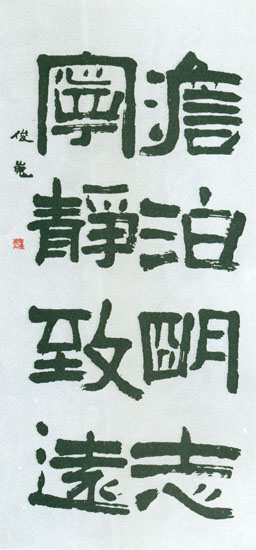 澹泊明志
寧靜致遠
俊